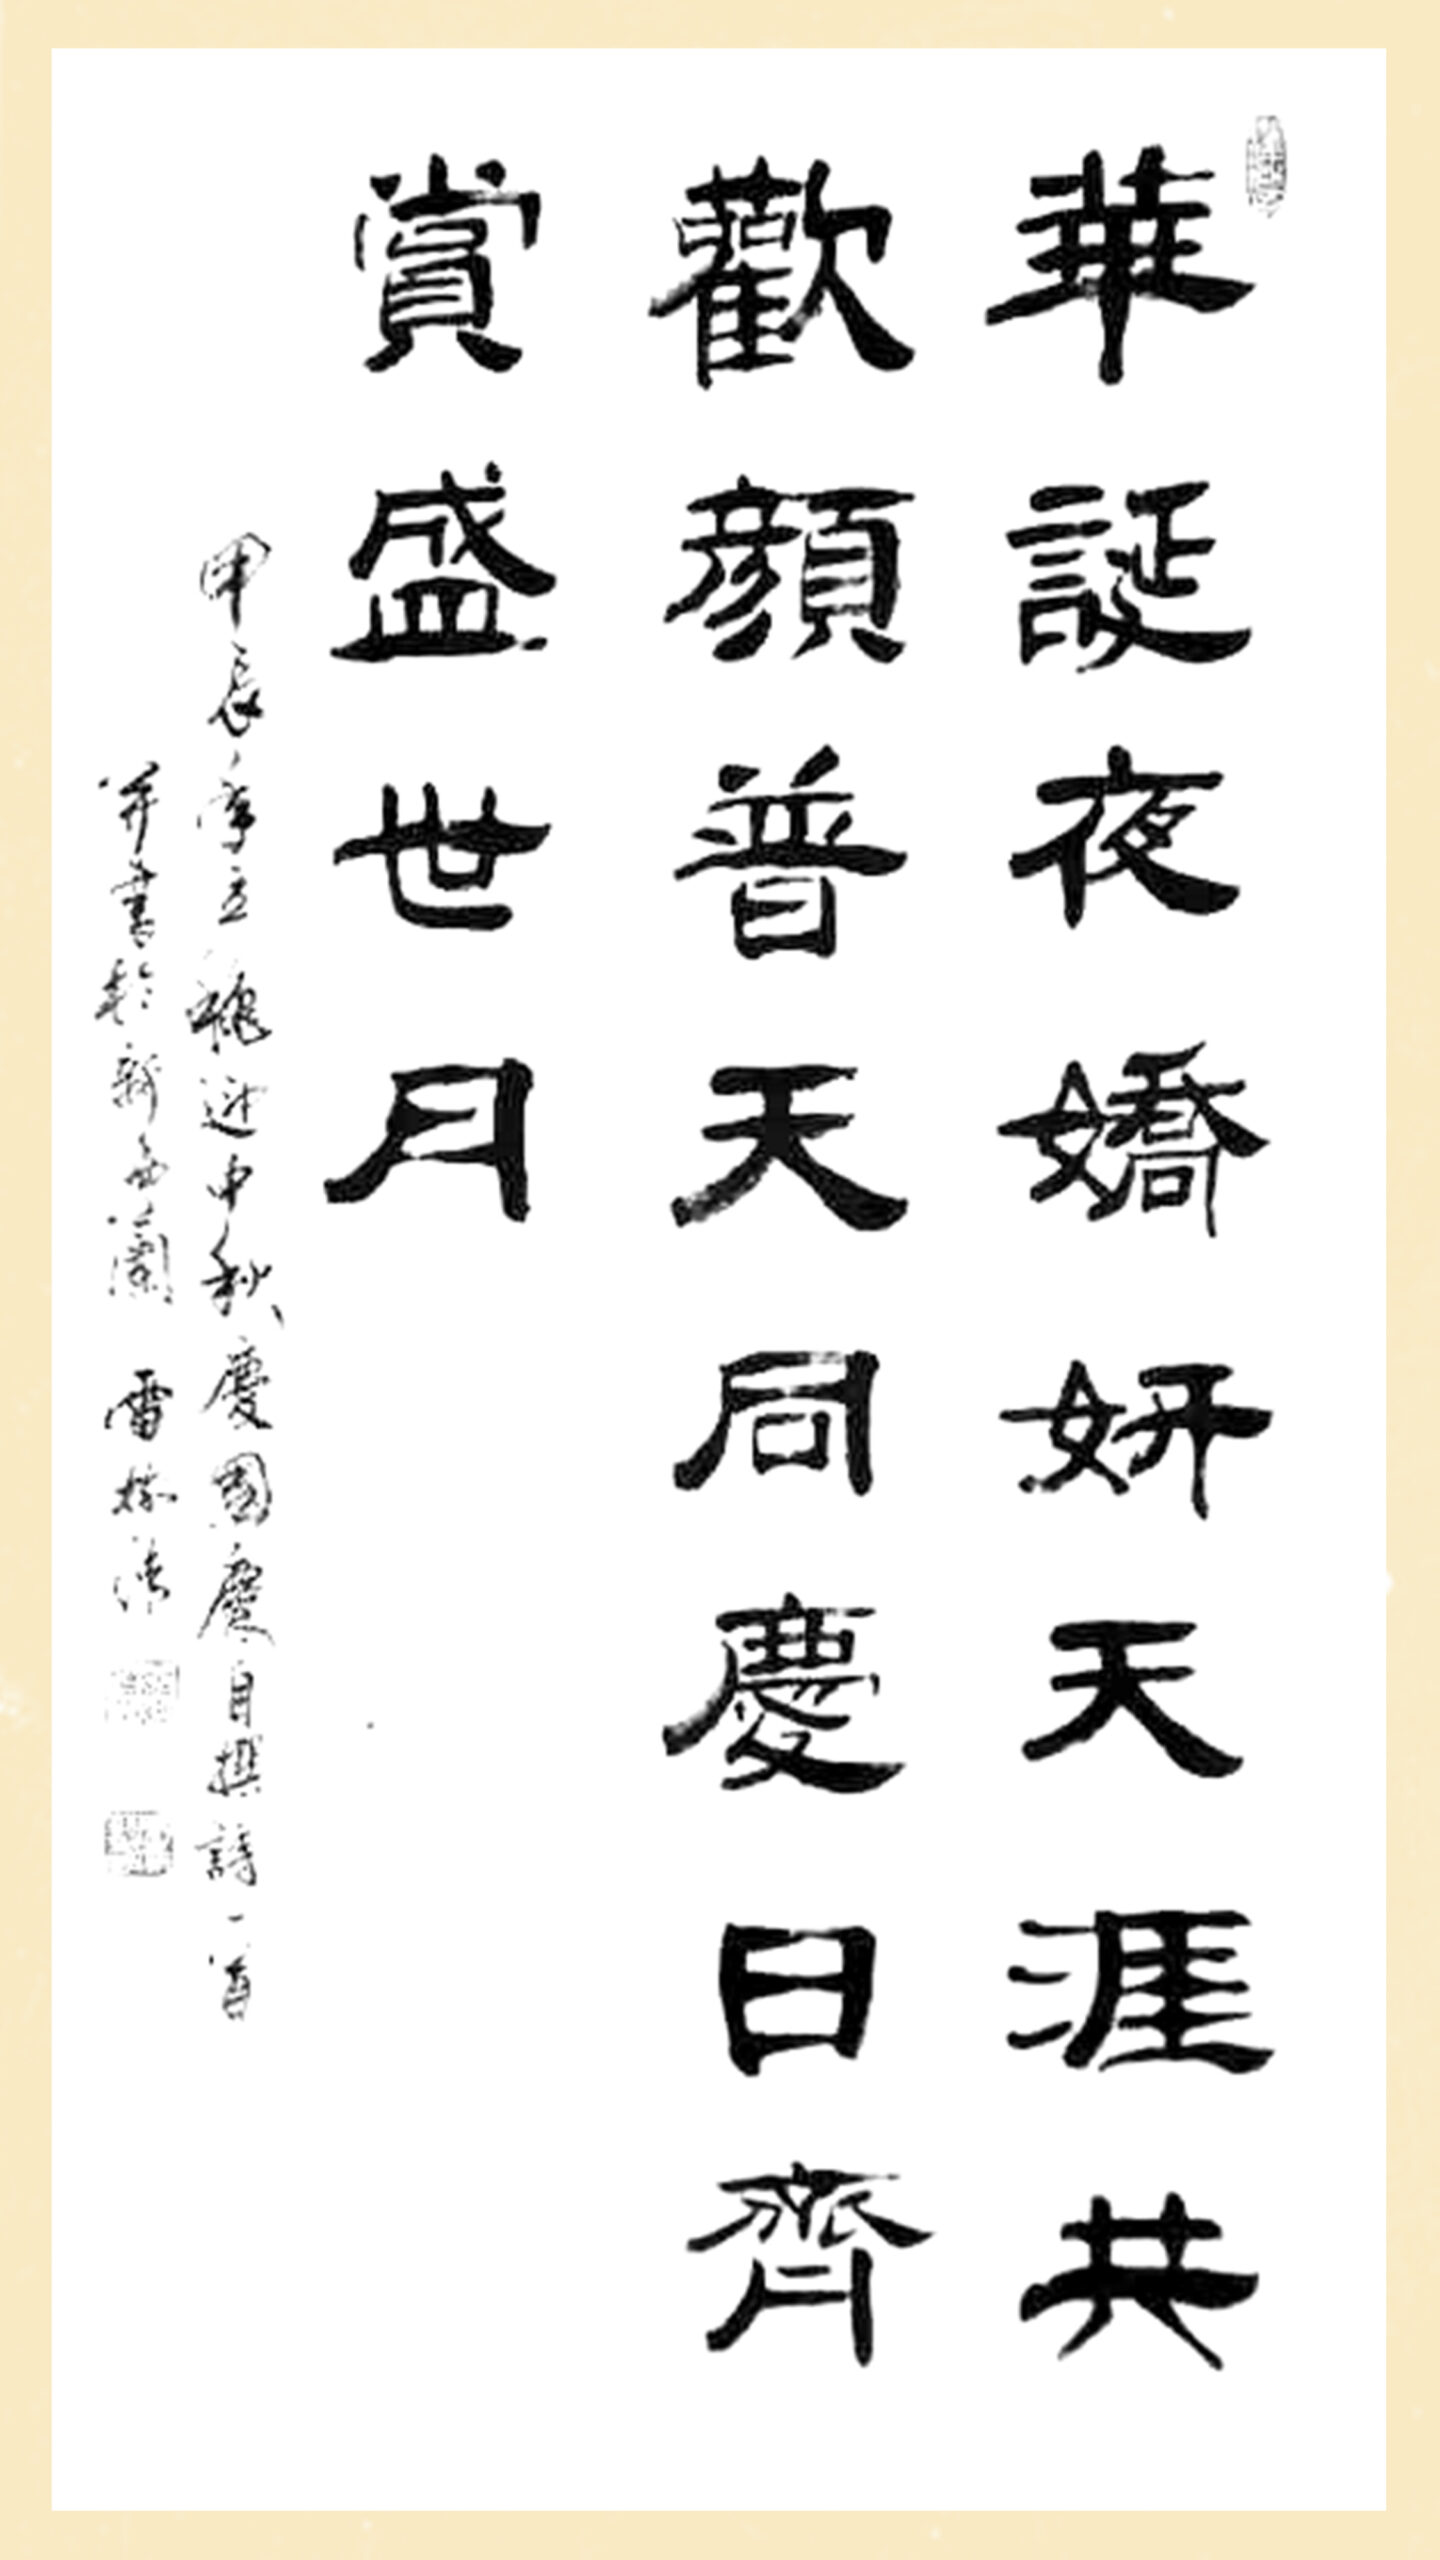 華誕夜嬌妍天涯共
歡顏普天同慶日齊
賞盛世月
甲辰年立秋迎中秋慶國慶自撰詩一首
并書於新西蘭 雷